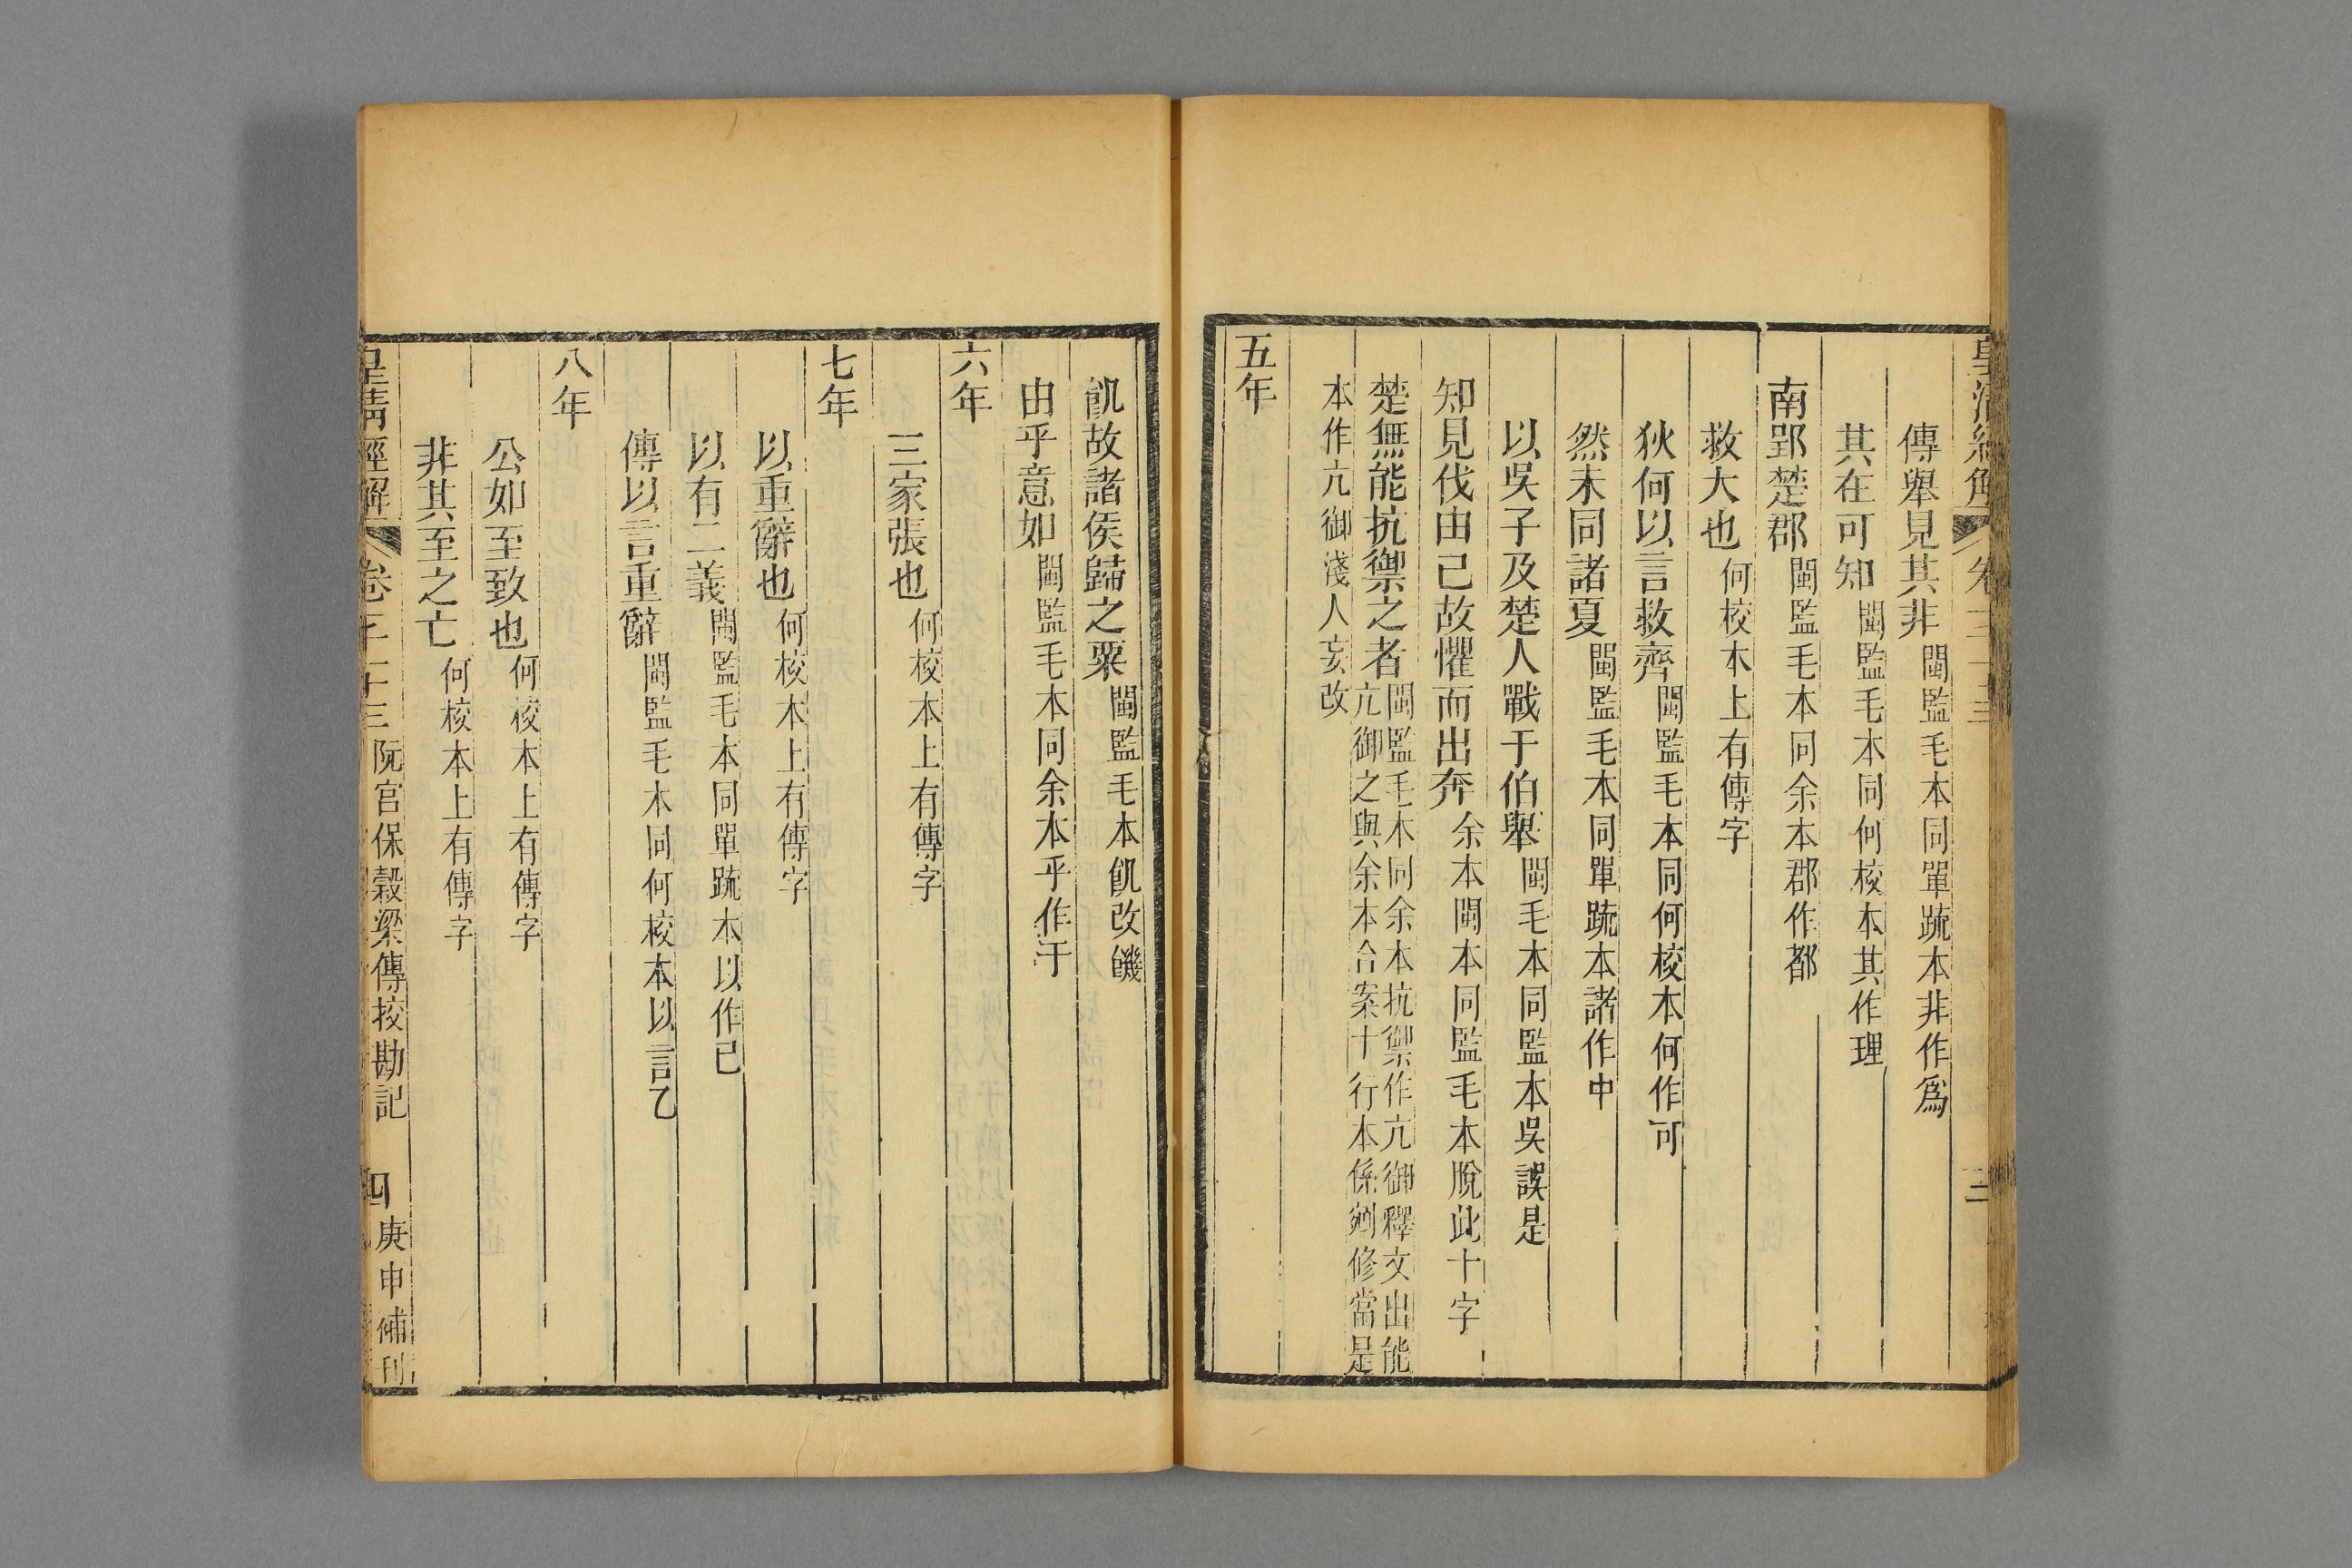 皇清經解 卷
傳舉見其非閩監毛本同單䟽本非作爲
其在可知閩監毛本同何校本其作理
南郢楚郡閩監毛本同余本郡作都
救大也何校本上有傳字
狄何以言救齊閩監毛本同何校本何作可
然未同諸夏閩監毛本同單䟽本諸作中
以吳子及楚人戰于伯舉閩毛本同監本吳誤是
知見伐由己故懼而出奔余本閩本同監毛本脫此十字
楚無能抗禦之者閩監毛本同余本抗禦作亢御釋文出能
亢御之與余本合案十行本係剜修當是
本作亢御淺人妄改
五年
飢故諸侯歸之粟閩監毛本飢改饑
由乎意如閩監毛本同余本乎作于
六年
三家張也何校本上有傳字
七年
以重辭也何校本上有傳字
以有二義閩監毛本同單䟽本以作已
傳以言重辭閩監毛本同何校本以言乙
八年
公如至致也何校本上有傳字
非其至之亡何校本上有傳字
皇清經解 卷 阮宮保穀梁傳挍勘記 四 庚申補刊